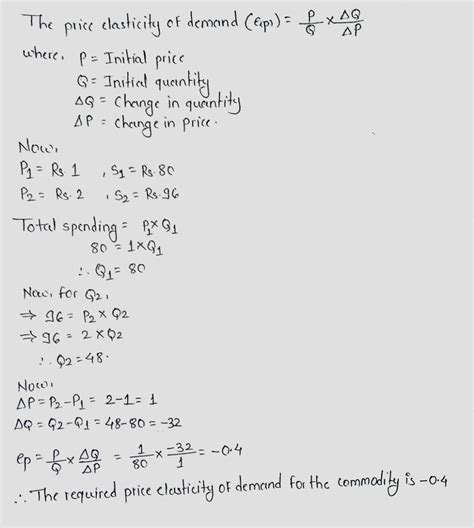 The price elasticity of demand (eₚ) = P/Q × ΔQ/ΔP
where, P = Initial price
Q = Initial quantity
ΔQ = Change in quantity
ΔP = change in price.
Now,
P₁ = Rs. 1 , S₁ = Rs. 80
P₂ = Rs. 2 , S₂ = Rs. 96
Total spending = P₁ × Q₁
80 = 1 × Q₁
∴ Q₁ = 80
Now, for Q2,
⇒ 96 = P₂ × Q2
⇒ 96 = 2 × Q2
∴ Q2 = 48.
Now,
ΔP = P₂ - P₁ = 2 - 1 = 1
ΔQ = Q2 - Q1 = 48 - 80 = -32
eₚ = P/Q × ΔQ/ΔP = 1/80 × -32/1 = -0.4
∴ The required price elasticity of demand for the commodity is -0.4